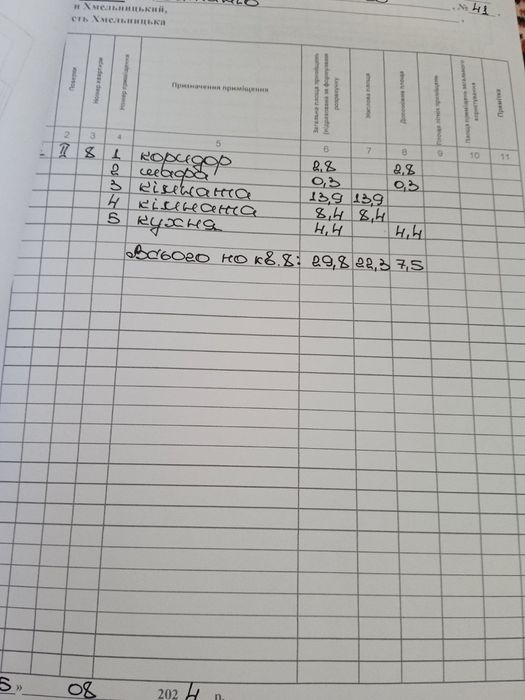 н Хмельницький, № 41.
сть Хмельницька
Поверхи Номер квартири Номер приміщення Призначення приміщення Загальна площа приміщень (відрахована за формулами розрахунку Житлова площа Допоміжна площа Площа літніх приміщень Площа приміщень загального користування Примітка
2 3 4 5 6 7 8 9 10 11
II 8 1 коридор 2,8 2,8
2 шафа 0,3 0,3
3 кімната 13,9 13,9
4 кімната 8,4 8,4
5 кухня 4,4 4,4
Всього по кв. 8: 29,8 22,3 7,5
5 » 08 2024 р.